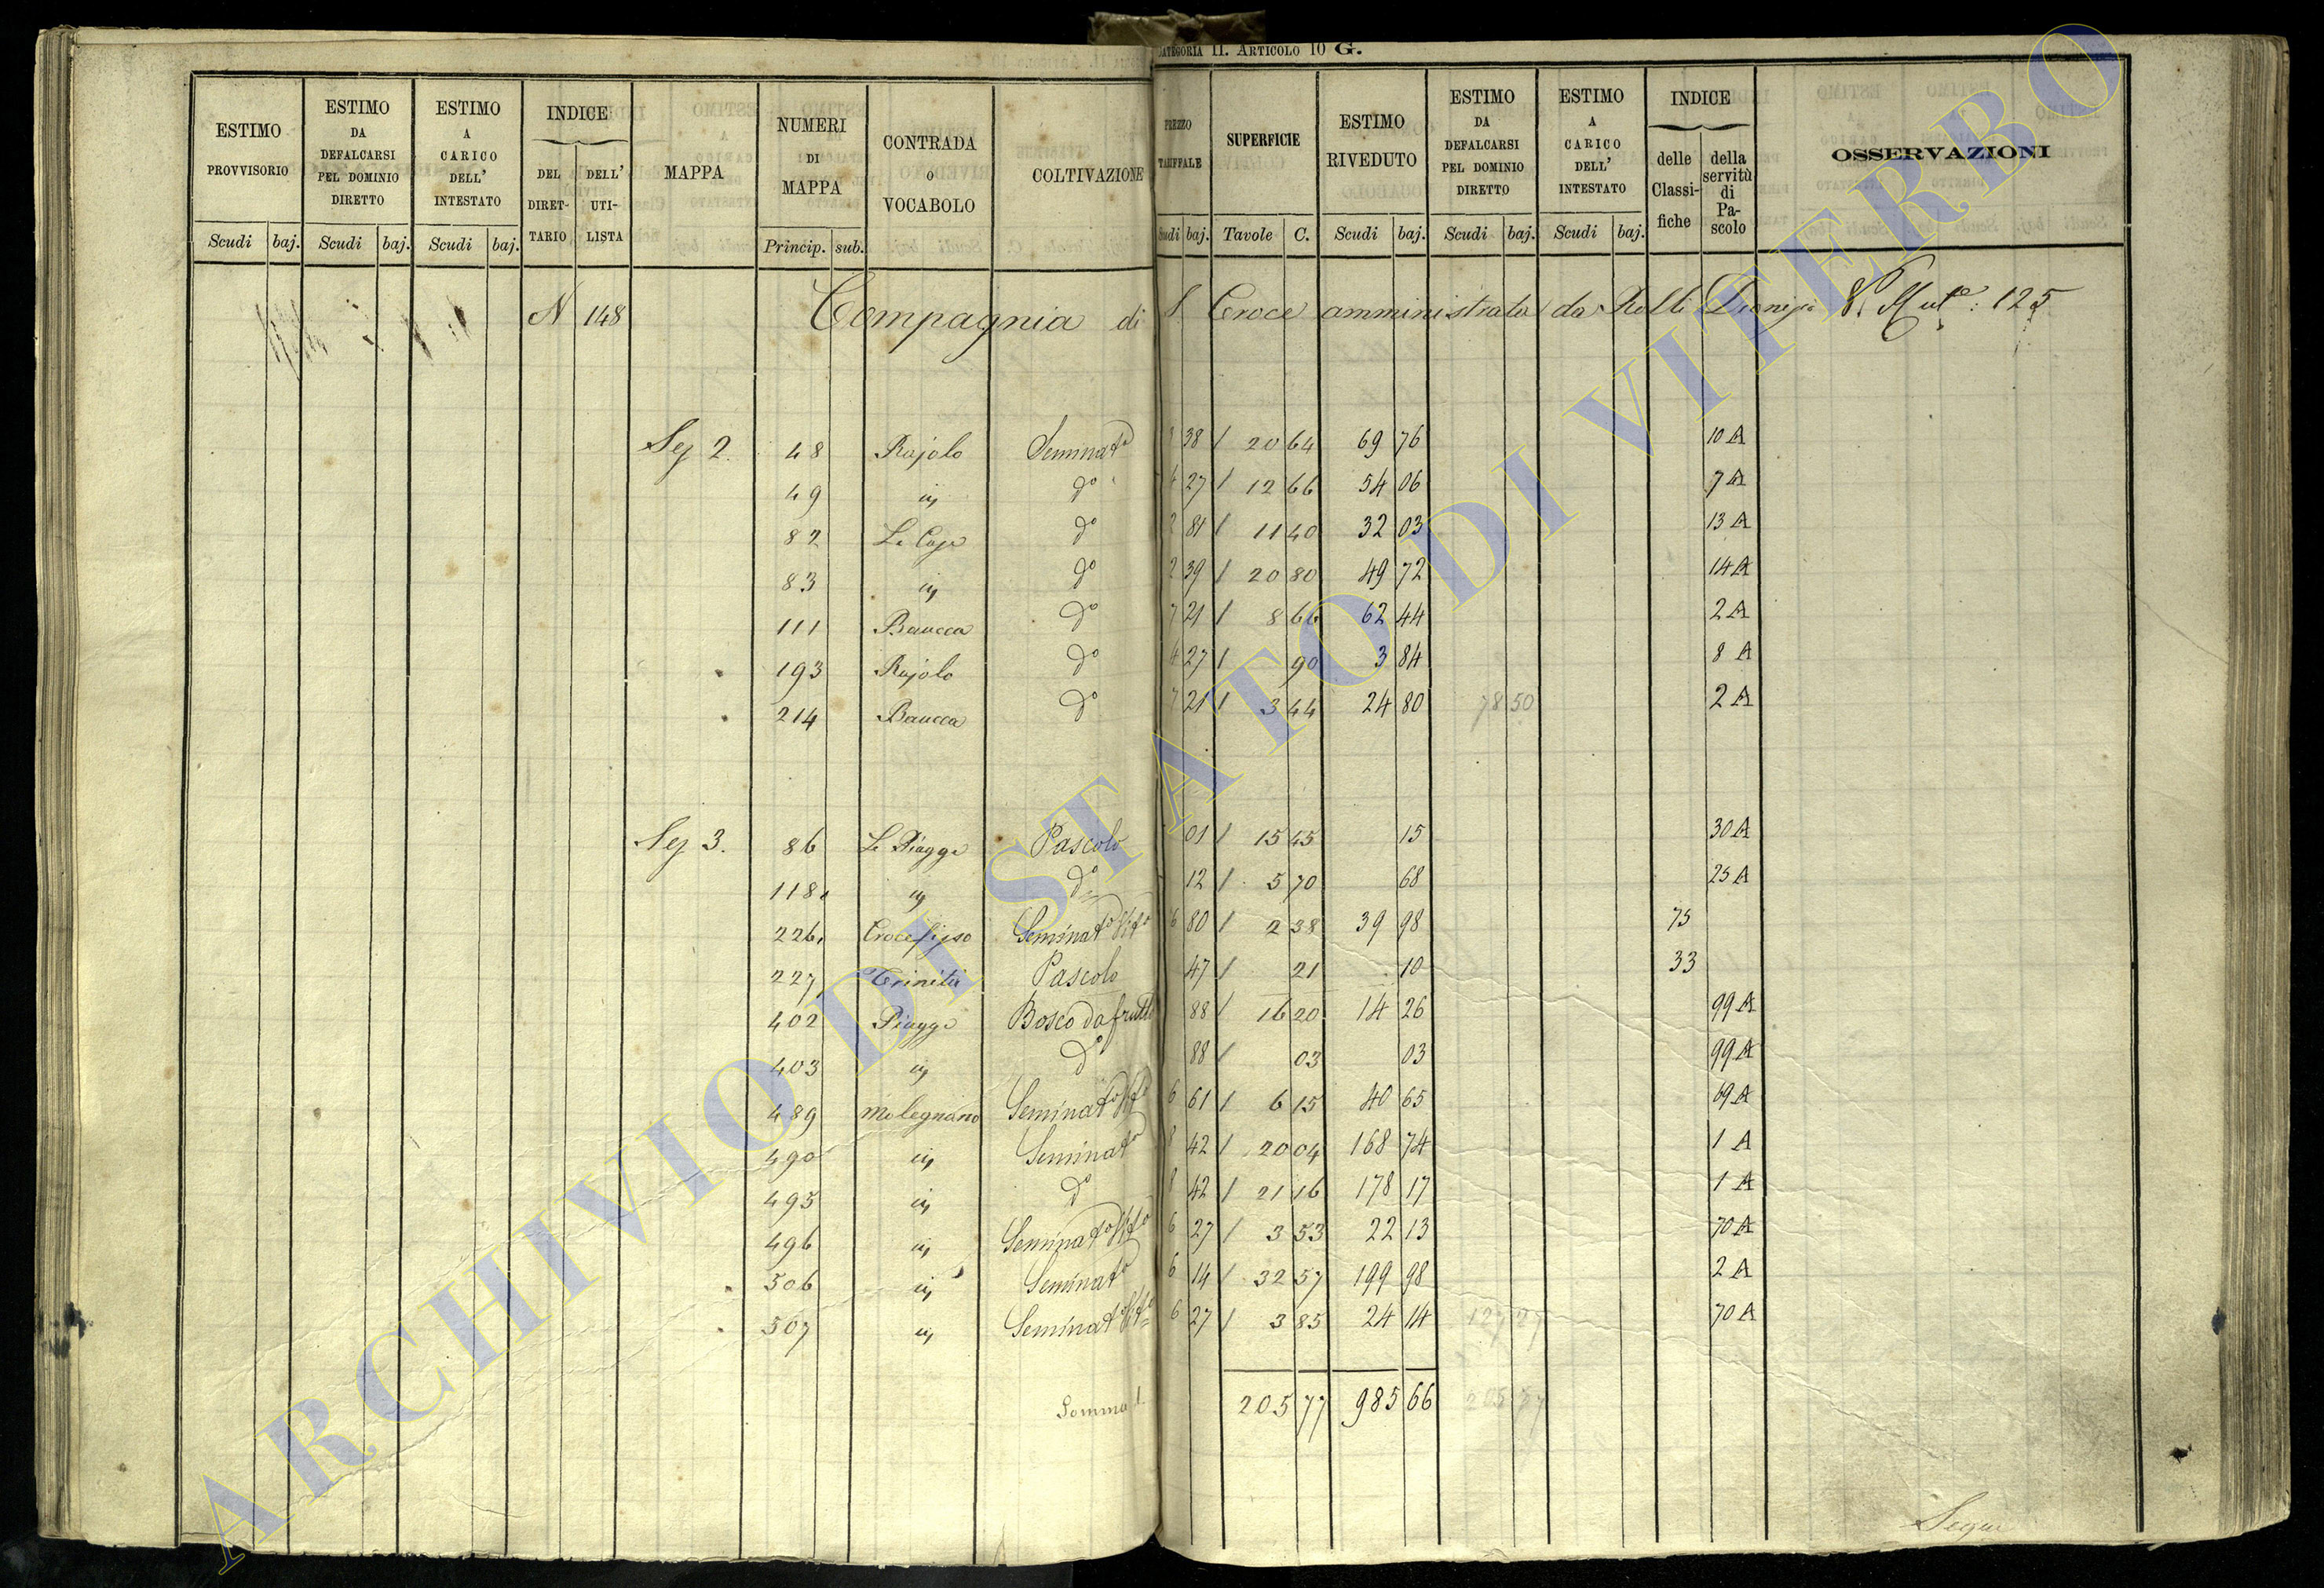 CATEGORIA II. ARTICOLO 10 G.
ESTIMO PROVVISORIO | ESTIMO DA DEFALCARSI PEL DOMINIO DIRETTO | ESTIMO A CARICO DELL' INTESTATO | INDICE DEL DIRETTARIO | DELL' UTILISTA | MAPPA | NUMERI DI MAPPA | CONTRADA o VOCABOLO | COLTIVAZIONE | PREZZO TARIFFALE | SUPERFICIE | ESTIMO RIVEDUTO | ESTIMO DA DEFALCARSI PEL DOMINIO DIRETTO | ESTIMO A CARICO DELL' INTESTATO | INDICE delle Classifiche | della servitù di Pascolo | OSSERVAZIONI
Scudi baj. Scudi baj. Scudi baj. Princip. sub. Scudi baj. Tavole C. Scudi baj. Scudi baj. Scudi baj.
N 148 Compagnia di S. Croce amministrata da Rolli Dionisio : 125
Sez 2. 48 Rajolo Seminato 38 20 64 69 76 10 A
49 in do 4 27 12 66 54 06 7 A
82 Le Case do 2 81 11 40 32 03 13 A
83 in do 2 39 20 80 49 72 14 A
111 Baucca do 7 21 8 66 62 44 2 A
193 Rajolo do 4 27 90 3 84 8 A
214 Baucca do 7 21 3 44 24 80 78 50 2 A
Sez 3. 86 Le Piagge Pascolo 01 15 45 15 30 A
118 in do 12 5 70 68 25 A
226 Crocefisso Seminato Vito 80 2 38 39 98 75
227 Trinità Pascolo 47 21 10 33
402 Piagge Bosco da frutto 88 16 20 14 26 99 A
403 in do 88 03 03 99 A
489 Molegnano Seminato Vito 6 61 6 15 40 65 69 A
490 in Seminato 8 42 20 04 168 74 1 A
495 in do 8 42 21 16 178 17 1 A
496 in Seminato Vito 6 27 3 53 22 13 70 A
506 in Seminato 6 14 32 57 199 98 2 A
507 in Seminato Vito 6 27 3 85 24 14 70 A
Somma 205 77 985 66
Segue
ARCHIVIO DI STATO DI VITERBO